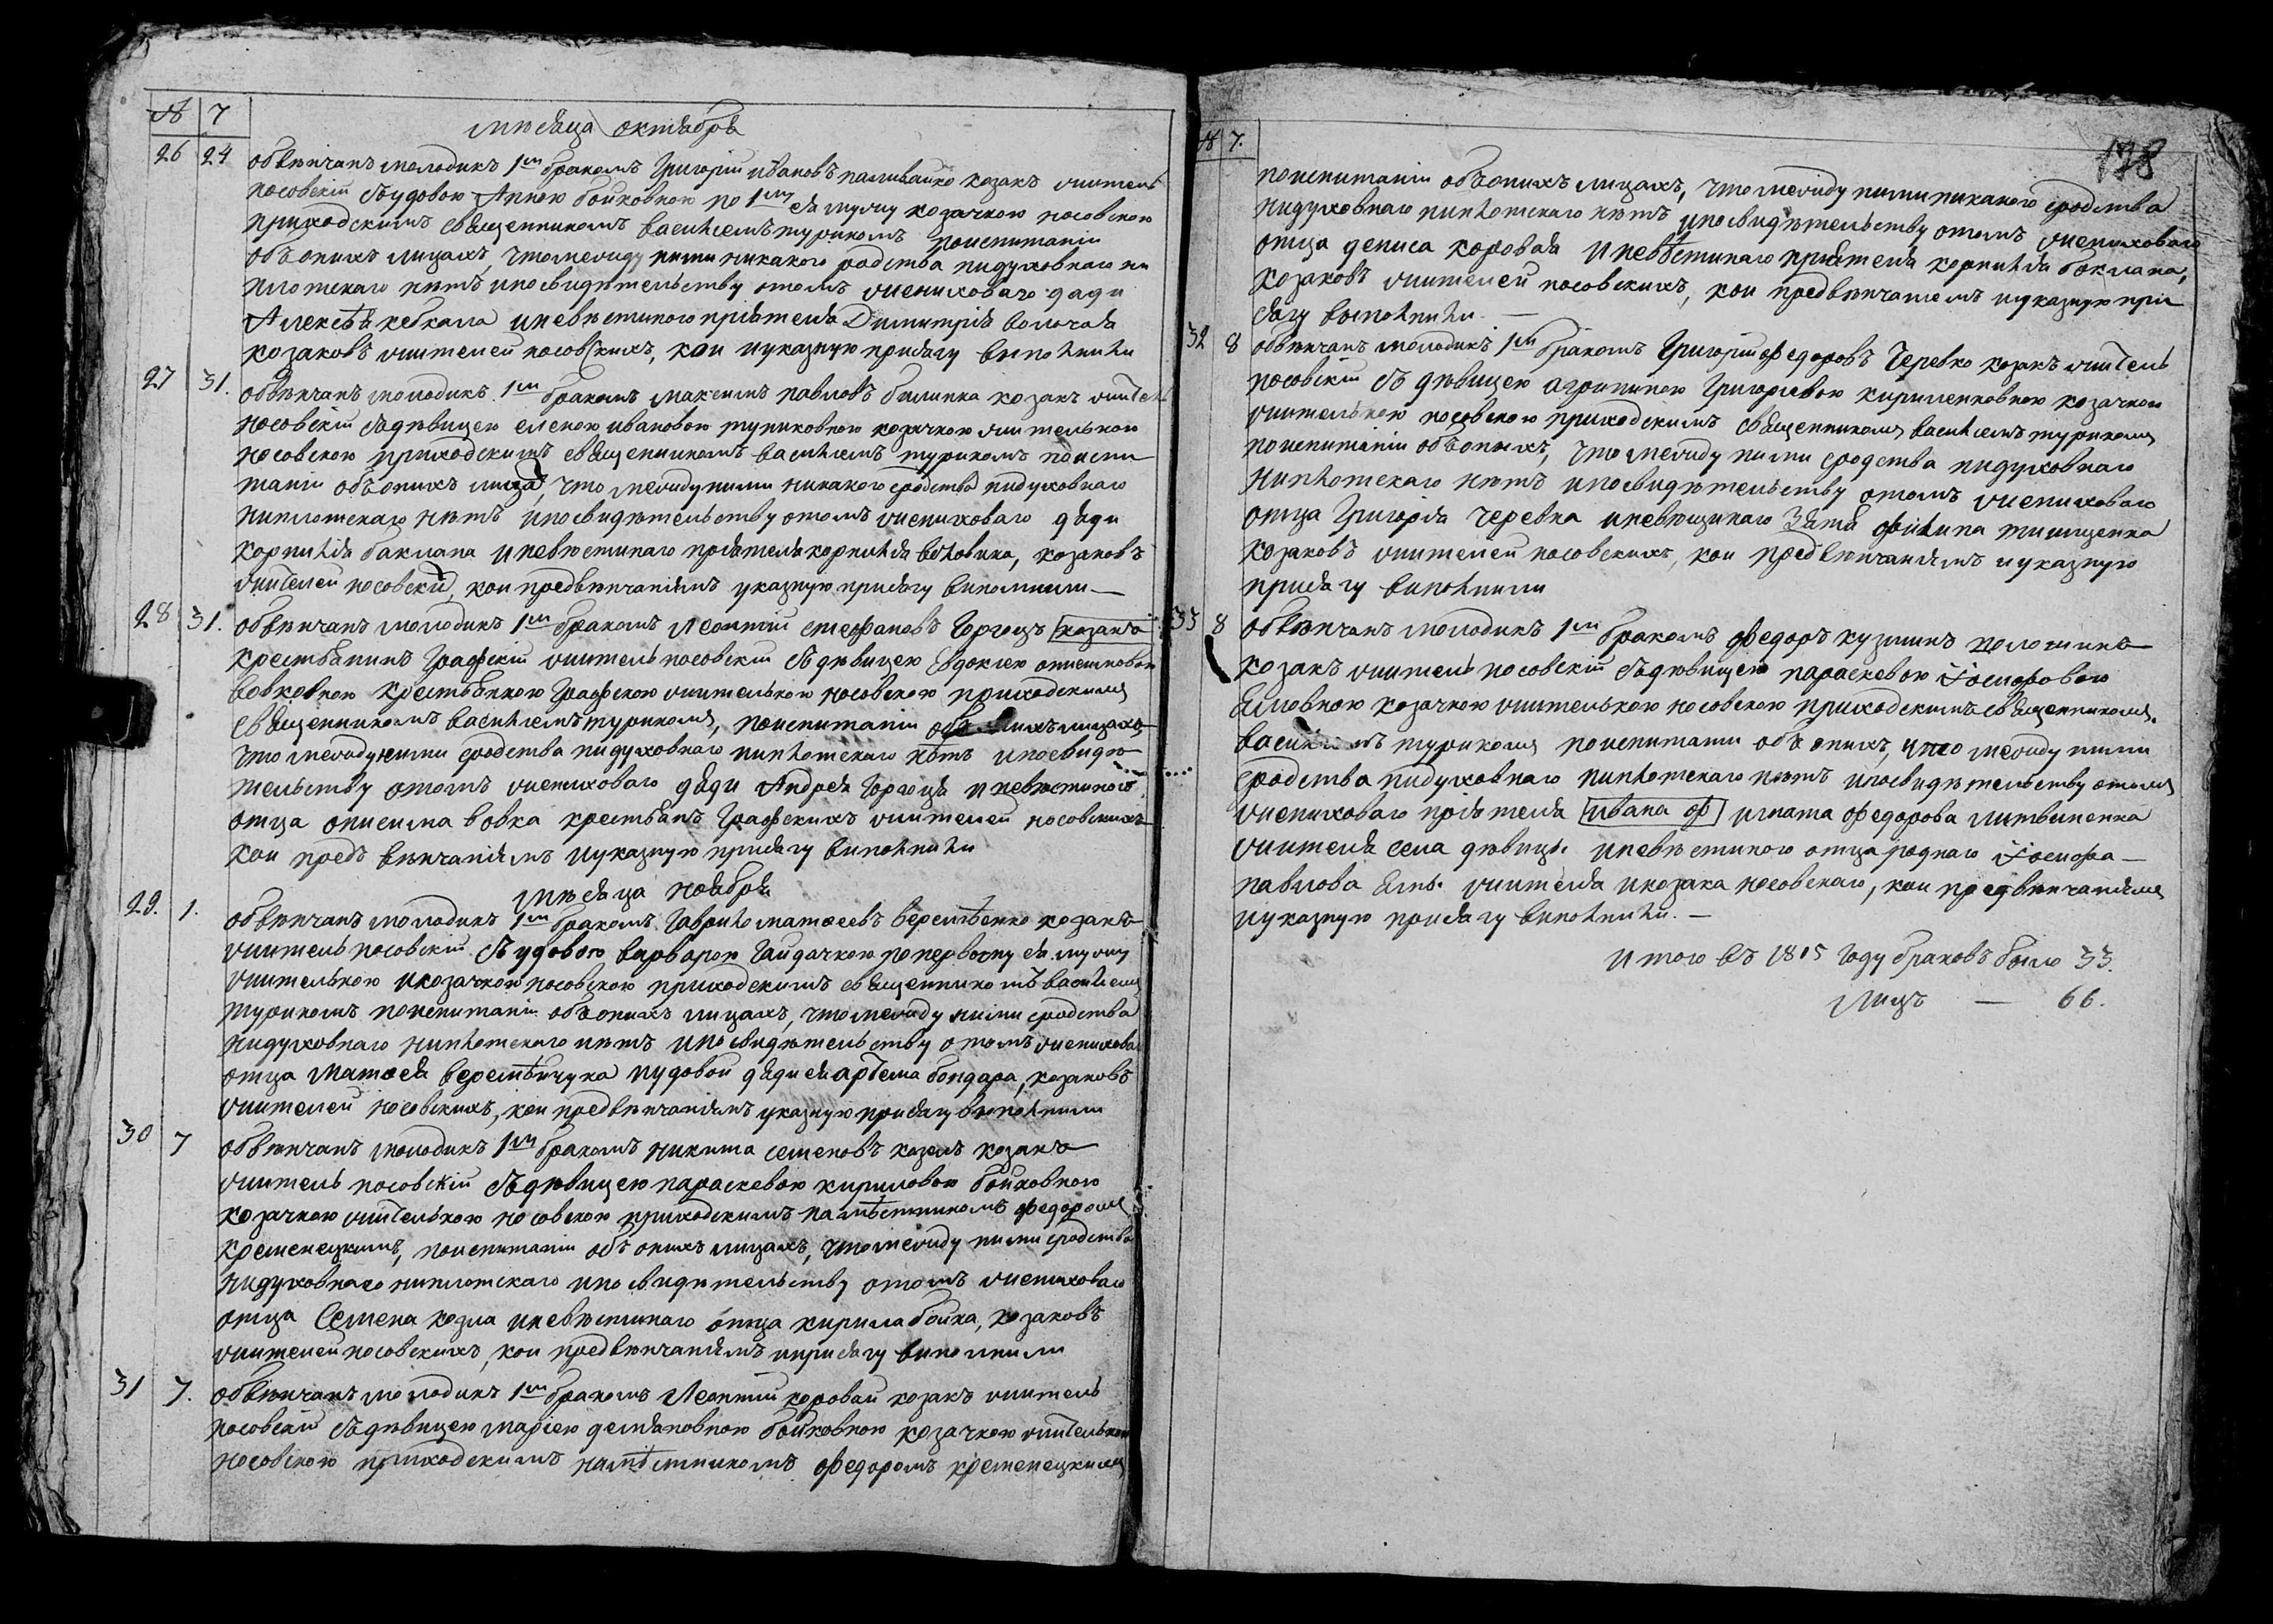 № 7
мѣсяца октября
26 24 обвѣнчанъ молодикъ 1мъ бракомъ Григорій Ивановъ наливайко козакъ житель
носовскій съ удовою Анною бойковною по 1му ея мужу козачкою носовскою
приходскимъ священникомъ василіемъ турикомъ поиспитаніи
объ онихъ лицахъ, что между ними никакого родства нидуховнаго ни
плотскаго нѣтъ ипосвидѣтельству отомъ жениховаго дяди
Алексѣя кебкала иневѣстиного пріятеля Димитрія волочая
козаковъ жителей носовскихъ, кои иуказную присягу виполнили
27 31. обвѣнчанъ молодикъ 1мъ бракомъ максимъ павловъ билинка козакъ житель
носовскій съдѣвицею еленою ивановою туриковною козачкою жителькою
носовскою приходскимъ священникомъ василіемъ турикомъ поиспи
таніи объонихъ лицахъ, что междуними никакого сродства нидуховнаго
ниплотскаго нѣтъ ипосвидѣтельству отомъ жениховаго дяди
корнилія баклана иневѣстинаго пріятеля корнилія воловика, козаковъ
жителей носовскихъ, кои предвѣнчаніямъ указную присягу виполнили —
28 31. обвѣнчанъ молодикъ 1мъ бракомъ Леонтій стефановъ Горгоцъ козакъ
крестьянинъ Графскій житель носовскій съ дѣвицею Евдокіею онисимовою
вовковною крестьянкою Графскою жителькою носовскою приходскимъ
священникомъ василіемъ турикомъ, поиспитаніи объ онихъ лицахъ
что междуними сродства нидуховнаго ниплотскаго нѣтъ ипосвидѣ
тельству отомъ жениховаго дяди Андрея Горгоца иневѣстиного
отца онисима вовка крестьянъ Графскихъ жителей носовскихъ
кои предъ вѣнчаніямъ иуказную присягу виполнили
мѣсяца ноября
29. 1. обвѣнчанъ молодикъ 1мъ бракомъ Гаврило матѳеевъ веремѣенко козакъ
житель носовскій съ удовою варварою Гайдачкою по первому ея мужу
жителькою икозачкою носовскою приходскимъ священникомъ василіемъ
турикомъ поиспитаніи объонихъ лицахъ, что между ними сродства
нидуховнаго ниплотскаго нѣтъ ипосвидѣтельству отомъ жениховаго
отца матѳея веремѣйчука иудовой дяди ея артема бондара, козаковъ
жителей носовскихъ, кои предвѣнчаніямъ указную присягу виполнили
30 7 обвѣнчанъ молодикъ 1мъ бракомъ никита семеновъ козелъ козакъ
житель носовскій съдѣвицею параскевою кириловою бойковною
козачкою жителькою носовскою приходскимъ намѣстникомъ федоромъ
кременецкимъ, поиспитаніи объ онихъ лицахъ, что между ними сродства
нидуховнаго ниплотскаго ипосвидѣтельству отомъ жениховаго
отца Семена козла иневѣстинаго отца кирила бойка, козаковъ
жителей носовскихъ, кои предвѣнчаніямъ иприсягу виполнили
31 7. обвѣнчанъ молодикъ 1мъ бракомъ Леонтій коровай козакъ житель
носовскій съдѣвицею маріею демяновною бойковною козачкою жителькою
носовскою приходскимъ намѣстникомъ федоромъ кременецкимъ
№ 7.
178
поиспитаніи объонихъ лицахъ, что между ними никакого сродства
нидуховнаго ниплотскаго нѣтъ ипосвидѣтельству отомъ жениховаго
отца дениса коровая иневѣстинаго пріятеля корнилія баклана,
козаковъ жителей носовскихъ, кои предвѣнчаніемъ иуказную при
сягу виполнили. —
32 8 обвѣнчанъ молодикъ 1мъ бракомъ Григорій федоровъ Черевко козакъ житель
носовскій съ дѣвицею агрипиною Григоріевою кириленковною козачкою
жителькою носовскою приходскимъ священникомъ василіемъ турикомъ
поиспитаніи объонихъ, что между ними сродства нидуховнаго
ниплотскаго нѣтъ ипосвидѣтельству отомъ жениховаго
отца Григорія черевка иневѣщинаго Зятя филипа тимщенка
козаковъ жителей носовскихъ, кои предвѣнчаніямъ иуказную
присягу виполнили
33 8 обвѣнчанъ молодикъ 1мъ бракомъ федоръ кузминъ
козакъ житель носовскій съдѣвицею параскевою Іосифовою
козачкою жителькою носовскою приходскимъ священникомъ
василіемъ турикомъ поиспитаніи объ онихъ, что между ними
сродства нидуховнаго ниплотскаго нѣтъ ипосвидѣтельству отомъ
жениховаго пріятеля ивана ф игната федорова литвиненка
жителя села дѣвицы. иневѣстиного отца роднаго Іосифа —
павлова жителя икозака носовскаго, кои предвѣнчаніямъ
иуказную присягу виполнили. —
итого въ 1815 году браковъ было 33.
Лицъ — 66.